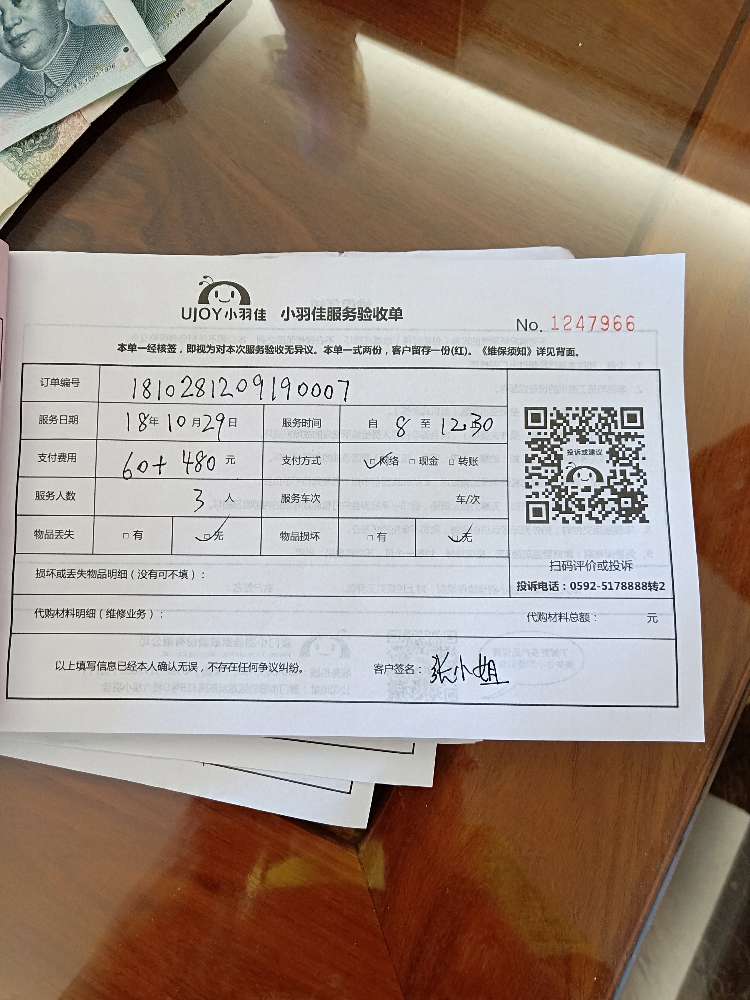 UJOY小羽佳 小羽佳服务验收单
No. 1247966
本单一经核签，即视为对本次服务验收无异议。本单一式两份，客户留存一份(红)。《维保须知》详见背面。
订单编号 1810281209190007
服务日期 18年10月29日 服务时间 自 8 至 1230
支付费用 60+480元 支付方式 ☑网络 □现金 □转账
服务人数 3人 服务车次 车/次
物品丢失 □有 ☑无 物品损坏 □有 ☑无
投诉或建议
扫码评价或投诉
投诉电话：0592-5178888转2
损坏或丢失物品明细（没有可不填）：
代购材料明细（维修业务）： 代购材料总额： 元
以上填写信息已经本人确认无误，不存在任何争议纠纷。 客户签名：张小姐